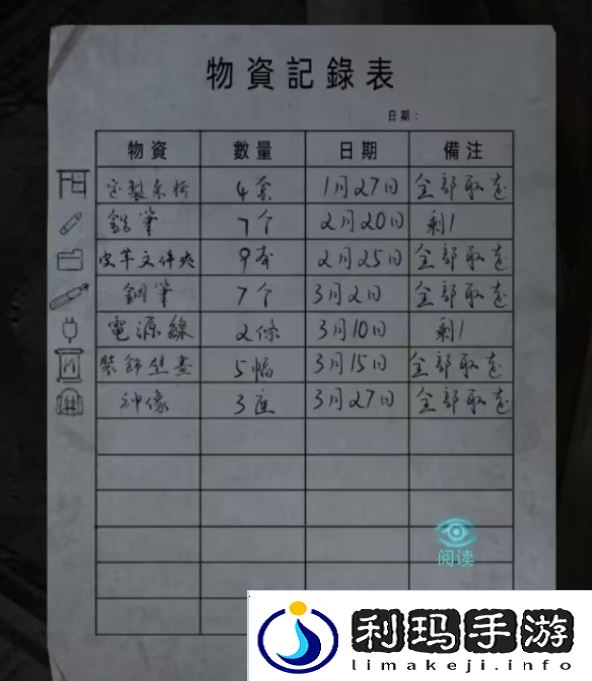 物資記錄表
日期：
物資 數量 日期 備注
定製桌椅 4套 1月27日 全部取走
鉛筆 7个 2月20日 剩1
皮革文件夾 9本 2月25日 全部取走
鋼筆 7个 3月2日 全部取走
電源線 2條 3月10日 剩1
裝飾壁畫 5幅 3月15日 全部取走
神像 3座 3月27日 全部取走
阅读
利玛手游
limakeji.info